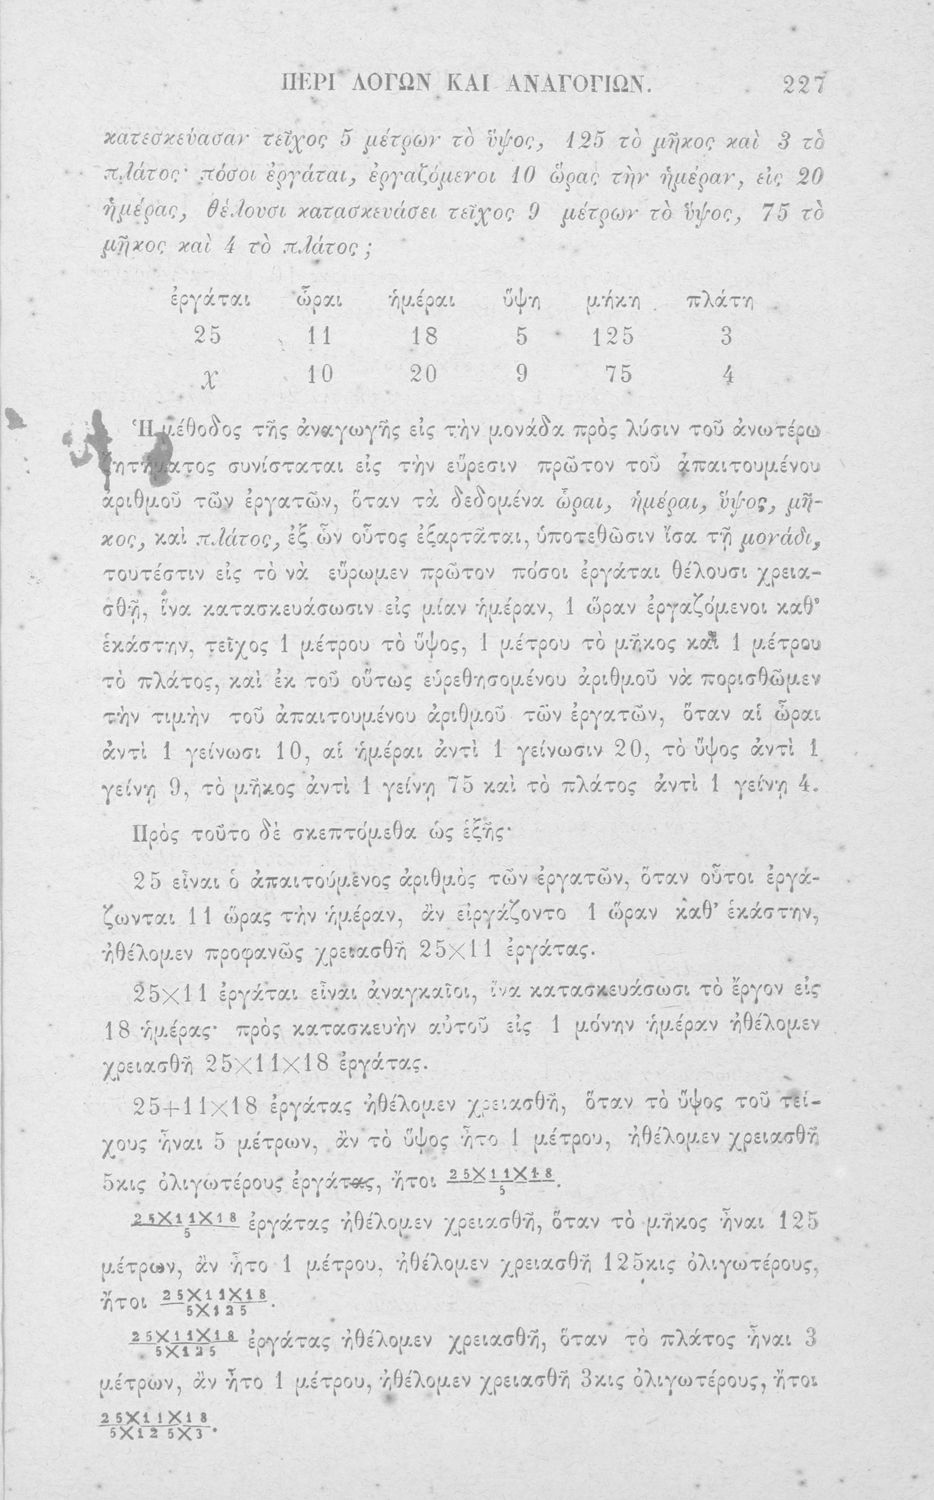 ΠΕΡΙ ΛΟΓΩΝ ΚΑΙ ΑΝΑΓΟΓΙΩΝ. 227
κατεσκεύασαν τεῖχος 5 μέτρων τὸ ὕψος, 125 τὸ μῆκος καὶ 3 τὸ
πλάτος· πόσοι ἐργάται, ἐργαζόμενοι 10 ὥρας τὴν ἡμέραν, εἰς 20
ἡμέρας, θέλουσι κατασκευάσει τεῖχος 9 μέτρων τὸ ὕψος, 75 τὸ
μῆκος καὶ 4 τὸ πλάτος;
ἐργάται ὧραι ἡμέραι ὕψη μήκη πλάτη
25 11 18 5 125 3
χ 10 20 9 75 4
Ἡ μέθοδος τῆς ἀναγωγῆς εἰς τὴν μονάδα πρὸς λύσιν τοῦ ἀνωτέρω
ζητήματος συνίσταται εἰς τὴν εὕρεσιν πρῶτον τοῦ ἀπαιτουμένου
ἀριθμοῦ τῶν ἐργατῶν, ὅταν τὰ δεδομένα ὧραι, ἡμέραι, ὕψος, μῆ-
κος, καὶ πλάτος, ἐξ ὧν οὗτος ἐξαρτᾶται, ὑποτεθῶσιν ἴσα τῇ μονάδι,
τουτέστιν εἰς τὸ νὰ εὕρωμεν πρῶτον πόσοι ἐργάται θέλουσι χρεια-
σθῆ, ἵνα κατασκευάσωσιν εἰς μίαν ἡμέραν, 1 ὥραν ἐργαζόμενοι καθ'
ἑκάστην, τεῖχος 1 μέτρου τὸ ὕψος, 1 μέτρου τὸ μῆκος καὶ 1 μέτρου
τὸ πλάτος, καὶ ἐκ τοῦ οὕτως εὑρεθησομένου ἀριθμοῦ νὰ πορισθῶμεν
τὴν τιμὴν τοῦ ἀπαιτουμένου ἀριθμοῦ τῶν ἐργατῶν, ὅταν αἱ ὧραι
ἀντὶ 1 γείνωσι 10, αἱ ἡμέραι ἀντὶ 1 γείνωσιν 20, τὸ ὕψος ἀντὶ 1
γείνῃ 9, τὸ μῆκος ἀντὶ 1 γείνῃ 75 καὶ τὸ πλάτος ἀντὶ 1 γείνῃ 4.
Πρὸς τοῦτο δὲ σκεπτόμεθα ὡς ἑξῆς·
25 εἶναι ὁ ἀπαιτούμενος ἀριθμὸς τῶν ἐργατῶν, ὅταν οὗτοι ἐργά-
ζωνται 11 ὥρας τὴν ἡμέραν, ἂν εἰργάζοντο 1 ὥραν καθ' ἑκάστην,
ἠθέλομεν προφανῶς χρειασθῆ 25×11 ἐργάτας.
25×11 ἐργάται εἶναι ἀναγκαῖοι, ἵνα κατασκευάσωσι τὸ ἔργον εἰς
18 ἡμέρας· πρὸς κατασκευὴν αὐτοῦ εἰς 1 μόνην ἡμέραν ἠθέλομεν
χρειασθῆ 25×11×18 ἐργάτας.
25+11×18 ἐργάτας ἠθέλομεν χρειασθῆ, ὅταν τὸ ὕψος τοῦ τεί-
χους ἦναι 5 μέτρων, ἂν τὸ ὕψος ἦτο 1 μέτρου, ἠθέλομεν χρειασθῆ
5κις ὀλιγωτέρους ἐργάτας, ἤτοι 25×11×18/5.
25×11×18/5 ἐργάτας ἠθέλομεν χρειασθῆ, ὅταν τὸ μῆκος ἦναι 125
μέτρων, ἂν ἦτο 1 μέτρου, ἠθέλομεν χρειασθῆ 125κις ὀλιγωτέρους,
ἤτοι 25×11×18/5×125.
25×11×18/5×125 ἐργάτας ἠθέλομεν χρειασθῆ, ὅταν τὸ πλάτος ἦναι 3
μέτρων, ἂν ἦτο 1 μέτρου, ἠθέλομεν χρειασθῆ 3κις ὀλιγωτέρους, ἤτοι
25×11×18/5×125×3.